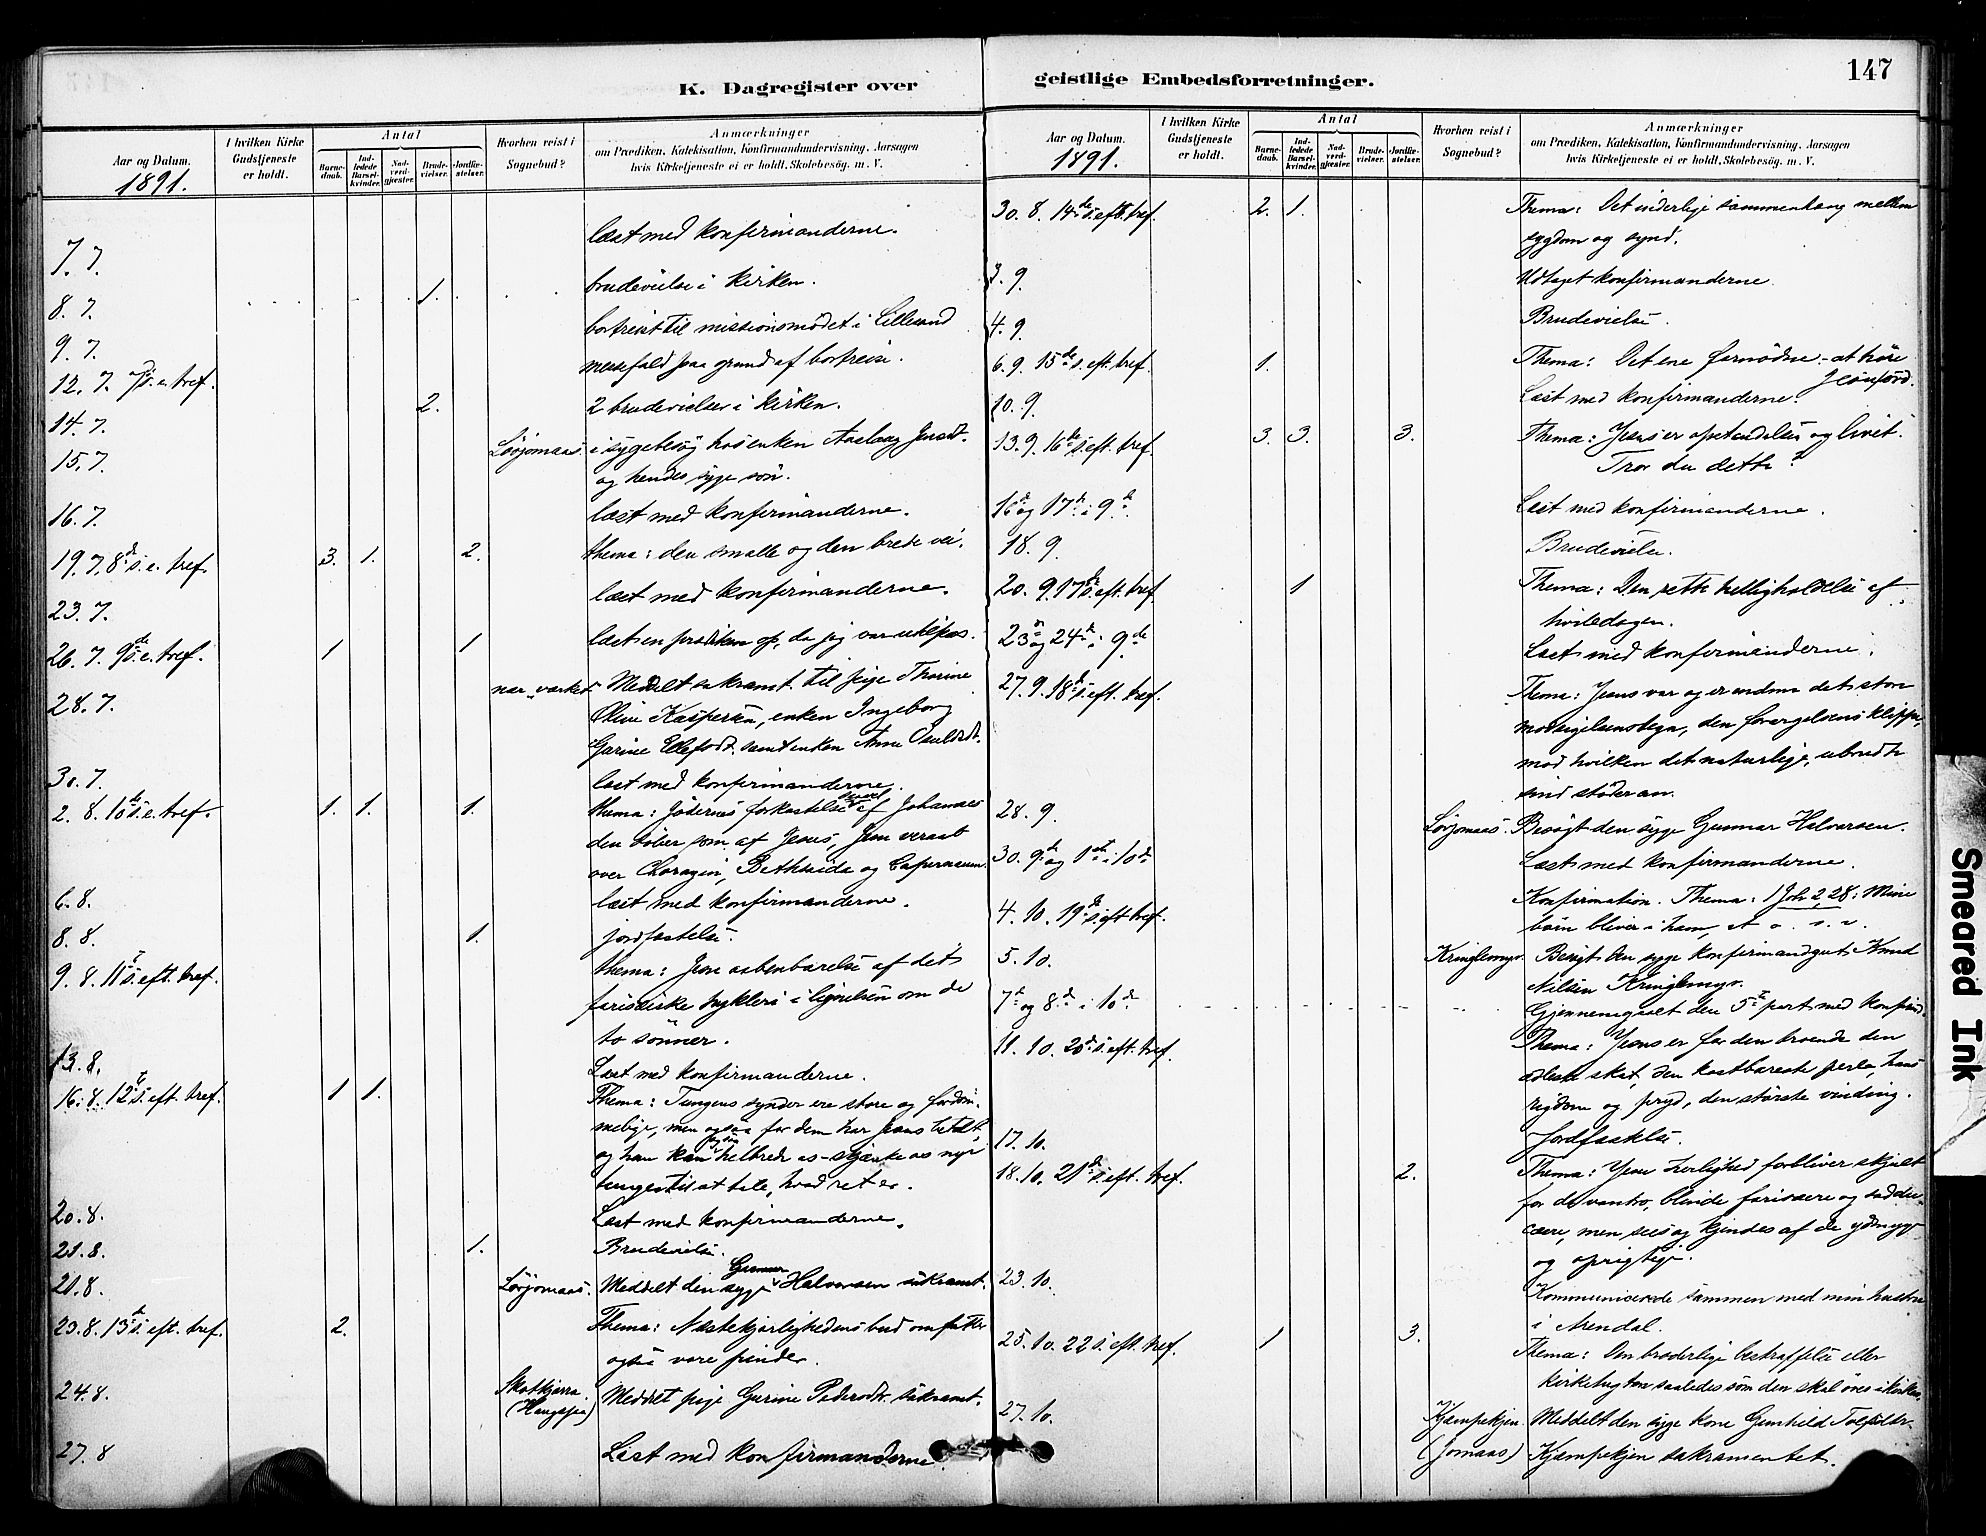 K. Dagregister over
Aar og Datum.
1891.
I hvilken Kirke Gudstjeneste er holdt.
Antal
Barnedaab.
Indledede Barselkvinder.
Nadverdgjester.
Brudevielser.
Jordfæstelser.
Hvorhen reist i Sognebud?
Anmærkninger
om Prædiken, Katekisation, Konfirmandundervisning, Aarsagen
hvis Kirketjeneste ei er holdt, Skolebesög m. V.
7. 7. læst med konfirmanderne.
8. 7. 1. brudevielse i kirken.
9. 7. bortreist til missionsmödet i Lillesand
12. 7. 7de s. e. tref. messefald paa grund af bortreise.
14. 7. 2. 2 brudevielser i kirken.
15. 7. i sygebesög hos enken Aaslaug
og hendes syge sön.
16. 7. læst med konfirmanderne.
19. 7. 8de s. e. tref. 3. 1. 2. thema: den smalle og den brede vei.
23. 7. læst med konfirmanderne.
26. 7. 9de s. e. tref. 1 1. læst en prædiken op, da jeg var utilpas.
28. 7. Meddelt sakramt. til pige Thorine
Oline Kaspersen, enken Ingeborg
samt enken Anne
30. 7. læst med konfirmanderne.
2. 8. 10de s. e. tref. 1. 1. 1. thema: Jödernes forkastelse af Johannes
den döber som af Jesus, Jesu veraab
over Chorazin, Bethsaida og Capernaum.
6. 8. læst med konfirmanderne.
8. 8. 1. jordfæstelse.
9. 8. 11te s. eft. tref. thema: Jesu aabenbarelse af det
farisæiske hykleri i lignelsen om de
to sönner.
13. 8. Læst med konfirmanderne.
16. 8. 12te s. eft. tref. 1 1. Thema: Tungens synder ere store og fordöm-
melige, men ogsaa for dem har Jesus betalt,
og han kan helbrede os - skjænke os nye
tunger til at tale, hvad ret er.
20. 8. Læst med konfirmanderne.
21. 8. 1. Brudevielse.
21. 8. Lörjomaas. Meddelt den syge Gunnar Halvorsen sakramt.
23. 8. 13de s. eft. tref. 2. Thema: Næstekjærlighedens bud omfatter
ogsaa vore fiender.
24. 8. Meddelt pige Gurine Pedersdtr. sakramt.
27. 8 Læst med konfirmanderne.
geistlige Embedsforretninger.
147
Aar og Datum.
1891.
I hvilken Kirke Gudstjeneste er holdt.
Antal
Barnedaab.
Indledede Barselkvinder.
Nadverdgjester.
Brudevielser.
Jordfæstelser.
Hvorhen reist i Sognebud?
Anmærkninger
om Prædiken, Katekisation, Konfirmandundervisning, Aarsagen
hvis Kirketjeneste ei er holdt, Skolebesög m. V.
30. 8. 14de s. eft. tref. 2. 1. Thema: Det inderlige sammenhæng mellem
sygdom og synd.
3. 9 Udtaget konfirmanderne.
4. 9. Brudevielse.
6. 9. 15de s. eft. tref. 1. Thema: Det ene fornödne - at höre
Jesu ord.
10. 9 Læst med konfirmanderne.
13. 9. 16de s. eft. tref. 3. 3. 3. Thema: Jesus er opstandelsen og livet.
Tror du dette?
16de og 17de i 9de. Læst med konfirmanderne.
18. 9. Brudevielse.
20. 9. 17de s. eft. tref. 1 Thema: Den rette helligholdelse af
hviledagen.
23de og 24de i 9de Læst med konfirmanderne.
27. 9. 18de s. eft. tref. Thema: Jesus var og er endnu det store
modsigelsens tegn, den forargelsens klippe,
mod hvilken det naturlige, ubrudte
sind stöder an.
28. 9. Lörjomaas. Besögt den syge Gunnar Halvorsen.
30. 9de og 1ste i 10de Læst med konfirmanderne.
4. 10. 19de s. eft tref. Konfirmation. Thema: 1 Joh 2, 28: Mine
börn bliver i ham,
5. 10. Kringlemyr. Besögt den syge konfirmandgut Knud
Nilsen Kringlemyr.
7de og 8de i 10de. Gjennemgaaet den 5te part med konfirmd.
11. 10. 20de s. eft. tref. Thema: Jesus er for den troende den
ædleste skat, den kostbareste perle, hans
rigdom og pryd, den störste vinding.
17. 10. Jordfæstelse.
18. 10. 21de s. eft. tref. 2. Thema: Jesu herlighed forbliver skjult
for de vantro, blinde farisæere og saddu-
cæere, men sees og kjendes af de ydmyge
og oprigtige.
23. 10. Kommunicerede sammen med min hustru
i Arendal.
25. 10. 22 s. eft. tref. 1 3. Thema: Den broderlige bestraffelse eller
kirketugten saaledes som den skal öves i kirken.
27. 10. Kjæmpekjen (Jomaas) Meddelt den syge kone Gunhild
Kjæmpekjen sakramentet.
Smeared Ink